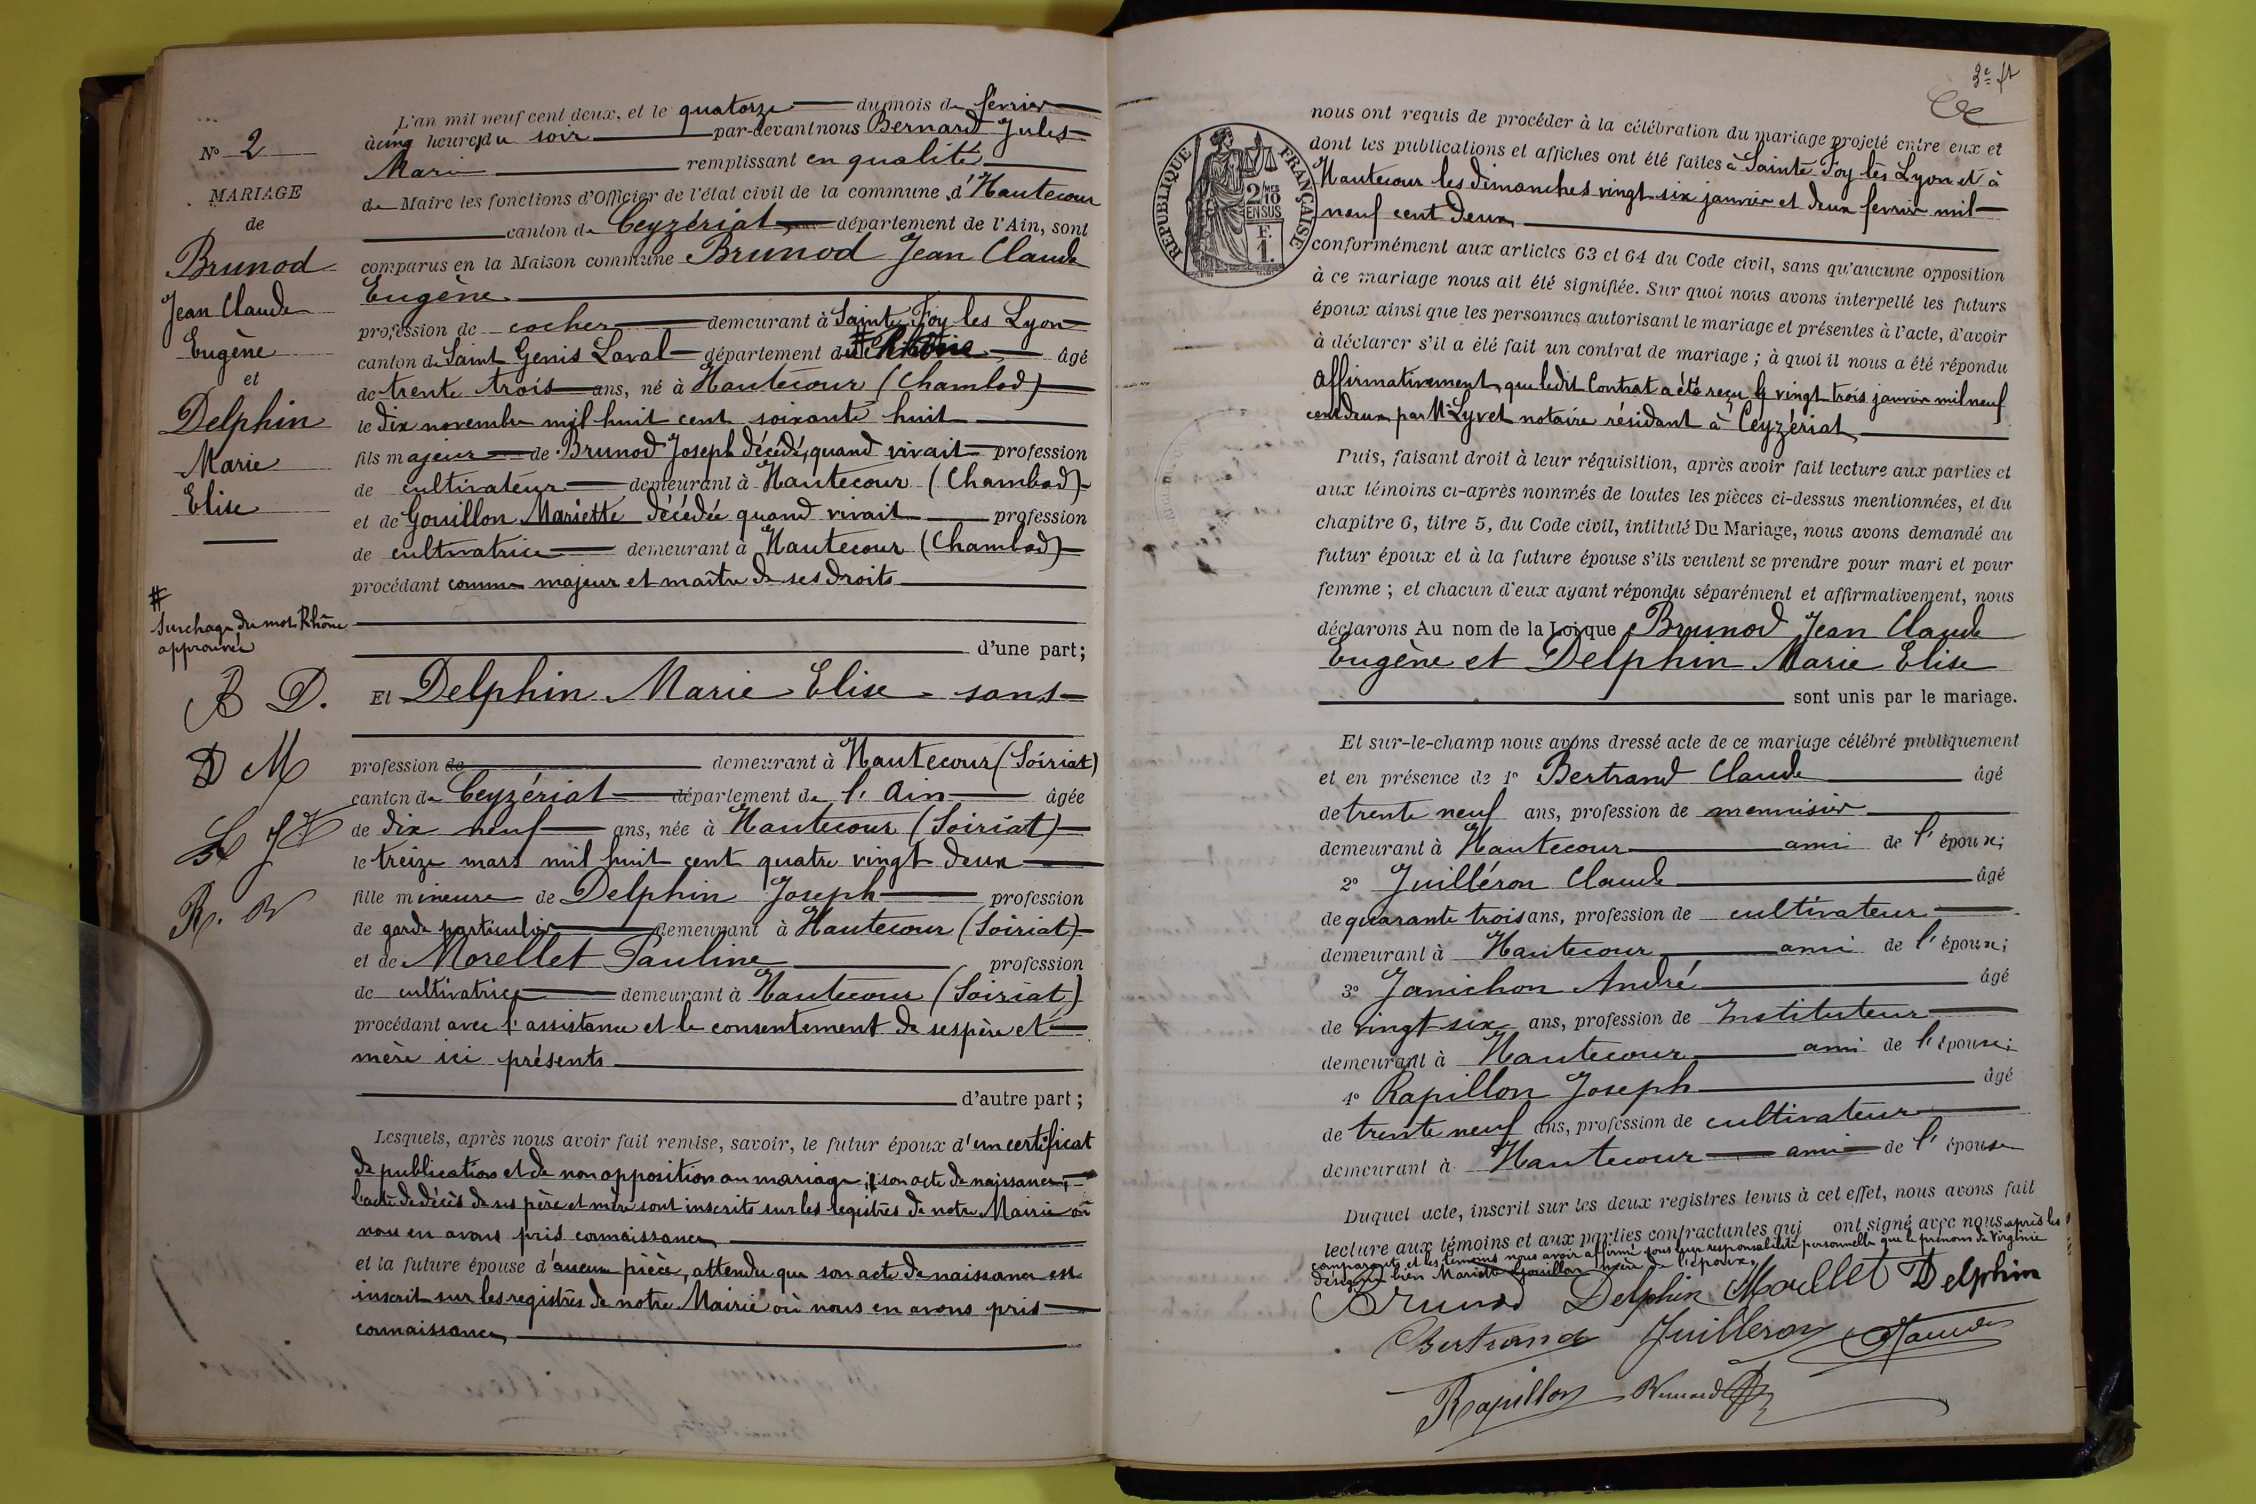 N° 2
MARIAGE
de
Brunod
Jean Claude
Eugène
et
Delphin
Marie
Elise
#
Surcharge du mot Rhône
approuvée
B D.
D M
B J J
R. B
L'an mil neuf cent deux, et le quatorze du mois de février
à cinq heures du soir par-devant nous Bernard Jules
Marie remplissant en qualité
de Maire les fonctions d'Officier de l'état civil de la commune d'Hautecour
canton de Ceyzériat département de l'Ain, sont
comparus en la Maison commune Brunod Jean Claude
Eugène
profession de cocher demeurant à Sainte Foy les Lyon
canton de Saint Genis Laval département du # Rhône âgé
de trente trois ans, né à Hautecour (Chambod)
le dix novembre mil huit cent soixante huit
fils majeur de Brunod Joseph décédé, quand vivait profession
de cultivateur demeurant à Hautecour (Chambod)
et de Gouillon Mariette décédée quand vivait profession
de cultivatrice demeurant à Hautecour (Chambod)
procédant comme majeur et maître de ses droits
d'une part;
Et Delphin Marie Elise sans
profession de demeurant à Hautecour (Soiriat)
canton de Ceyzériat département de l'Ain âgée
de dix neuf ans, née à Hautecour (Soiriat)
le treize mars mil huit cent quatre vingt deux
fille mineure de Delphin Joseph profession
de garde particulier demeurant à Hautecour (Soiriat)
et de Morellet Pauline profession
de cultivatrice demeurant à Hautecour (Soiriat)
procédant avec l'assistance et le consentement de ses père et
mère ici présents
d'autre part;
Lesquels, après nous avoir fait remise, savoir, le futur époux d'un certificat
de publication et de non opposition au mariage; son acte de naissance,
l'acte de décès de ses père et mère sont inscrits sur les registres de notre Mairie où
nous en avons pris connaissance
et la future épouse d'aucune pièce, attendu que son acte de naissance est
inscrit sur les registres de notre Mairie où nous en avons pris
connaissance,
3e ft
RÉPUBLIQUE FRANÇAISE
2/10 MES
EN SUS
F.
1.
nous ont requis de procéder à la célébration du mariage projeté entre eux et
dont les publications et affiches ont été faites à Sainte Foy lès Lyon et à
Hautecour les dimanches vingt six janvier et deux fevrier mil
neuf cent deux
conformément aux articles 63 et 64 du Code civil, sans qu'aucune opposition
à ce mariage nous ait été signifiée. Sur quoi nous avons interpellé les futurs
époux ainsi que les personnes autorisant le mariage et présentes à l'acte, d'avoir
à déclarer s'il a été fait un contrat de mariage; à quoi il nous a été répondu
Affirmativement, que ledit Contrat a été reçu le vingt trois janvier mil neuf
cent deux par Me Lyvet notaire résidant à Ceyzériat
Puis, faisant droit à leur réquisition, après avoir fait lecture aux parties et
aux témoins ci-après nommés de toutes les pièces ci-dessus mentionnées, et du
chapitre 6, titre 5, du Code civil, intitulé Du Mariage, nous avons demandé au
futur époux et à la future épouse s'ils veulent se prendre pour mari et pour
femme; et chacun d'eux ayant répondu séparément et affirmativement, nous
déclarons Au nom de la Loi que Brunod Jean Claude
Eugène et Delphin Marie Elise
sont unis par le mariage.
Et sur-le-champ nous avons dressé acte de ce mariage célébré publiquement
et en présence de 1° Bertrand Claude âgé
de trente neuf ans, profession de menuisier
demeurant à Hautecour ami de l'époux;
2° Juilléron Claude âgé
de quarante trois ans, profession de cultivateur
demeurant à Hautecour ami de l'époux;
3° Janichon André âgé
de vingt six ans, profession de Instituteur
demeurant à Hautecour ami de l'épouse;
4° Rapillon Joseph âgé
de trente neuf ans, profession de cultivateur
demeurant à Hautecour ami de l'épouse
Duquel acte, inscrit sur les deux registres tenus à cet effet, nous avons fait
lecture aux témoins et aux parties contractantes qui ont signé avec nous après les
comparants et les témoins nous avoir affirmé sous leur responsabilité personnelle que le prénom de Virginie
désigne bien Mariette Gouillon mère de l'époux.
Brunod Delphin Morellet Delphin
Bertrand Juilleron
Rapillon Bernard